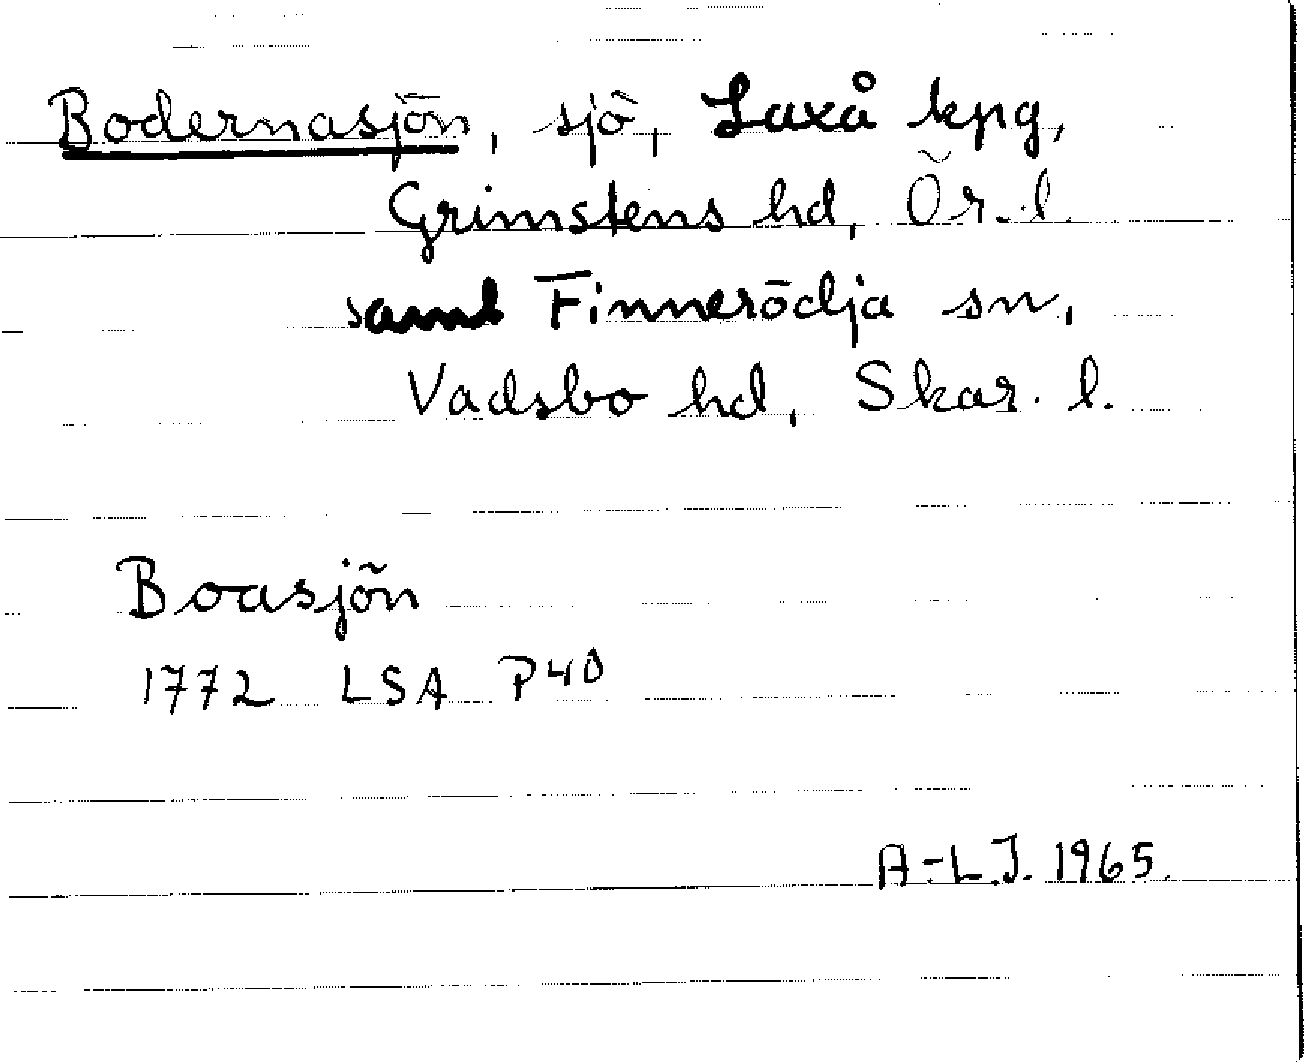 Bodernasjön, sjö, Laxå kpg,
Grimstens hd, Ör. l.
samt Finnerödja sn,
Vadsbo hd, Skar. l.
Boasjön
1772 LSA P40
A-L.J. 1965.